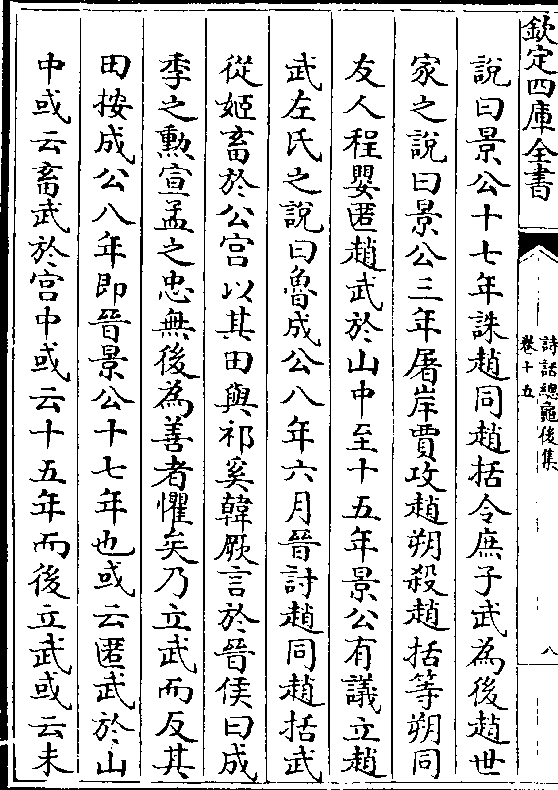 欽定四庫全書
詩話總龜後集
卷十五
八
說曰景公十七年誅趙同趙括令庶子武為後趙世
家之說曰景公三年屠岸賈攻趙朔殺趙括等朔同
友人程嬰匿趙武於山中至十五年景公有議立趙
武左氏之說曰魯成公八年六月晉討趙同趙括武
從姬畜於公宫以其田與祁奚韓厥言於晉侯曰成
季之勲宣孟之忠無後為善者懼矣乃立武而反其
田按成公八年即晉景公十七年也或云匿武於山
中或云畜武於宫中或云十五年而後立武或云未